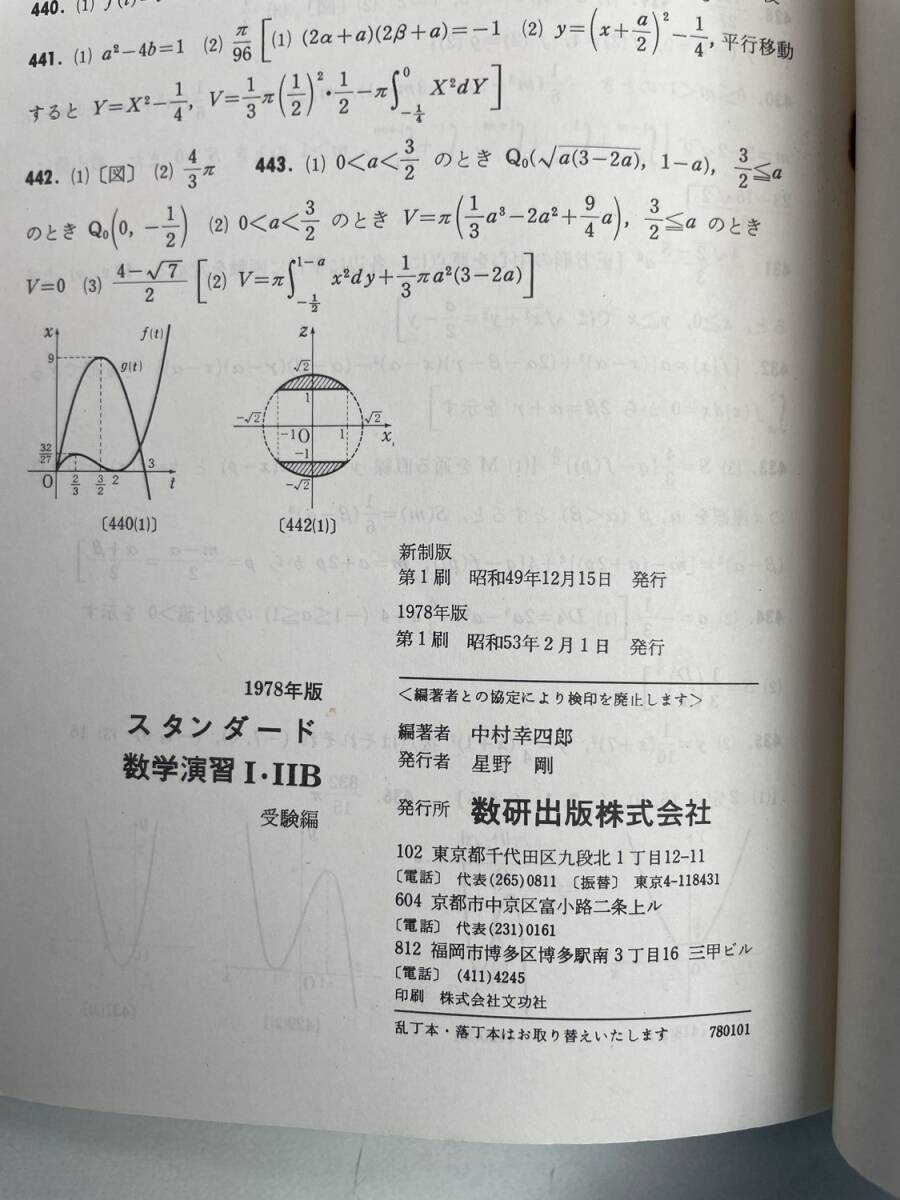 440. (1)
441. (1) a²−4b=1 (2) π/96 [(1) (2α+a)(2β+a)=−1 (2) y=(x+a/2)²−1/4, 平行移動
すると Y=X²−1/4, V=1/3π(1/2)²・1/2−π∫_{−1/4}^{0} X²dY]
442. (1)〔図〕 (2) 4/3π 443. (1) 0<a<3/2 のとき Q₀(√a(3−2a), 1−a), 3/2≦a
のとき Q₀(0, −1/2) (2) 0<a<3/2 のとき V=π(1/3a³−2a²+9/4a), 3/2≦a のとき
V=0 (3) (4−√7)/2 [(2) V=π∫_{−1/2}^{1−a} x²dy+1/3πa²(3−2a)]
x f(t)
9 g(t)
32/27
O 2/3 3/2 2 3 t
〔440(1)〕
z
√2
1
−√2 √2
−1 O 1 x
−1
−√2
〔442(1)〕
新制版
第1刷 昭和49年12月15日 発行
1978年版
第1刷 昭和53年2月1日 発行
1978年版
スタンダード
数学演習 I・IIB
受験編
<編著者との協定により検印を廃止します>
編著者 中村幸四郎
発行者 星野 剛
発行所 数研出版株式会社
102 東京都千代田区九段北1丁目12-11
〔電話〕 代表(265)0811 〔振替〕 東京4-118431
604 京都市中京区富小路二条上ル
〔電話〕 代表(231)0161
812 福岡市博多区博多駅南3丁目16 三甲ビル
〔電話〕 (411)4245
印刷 株式会社文功社
乱丁本・落丁本はお取り替えいたします 780101